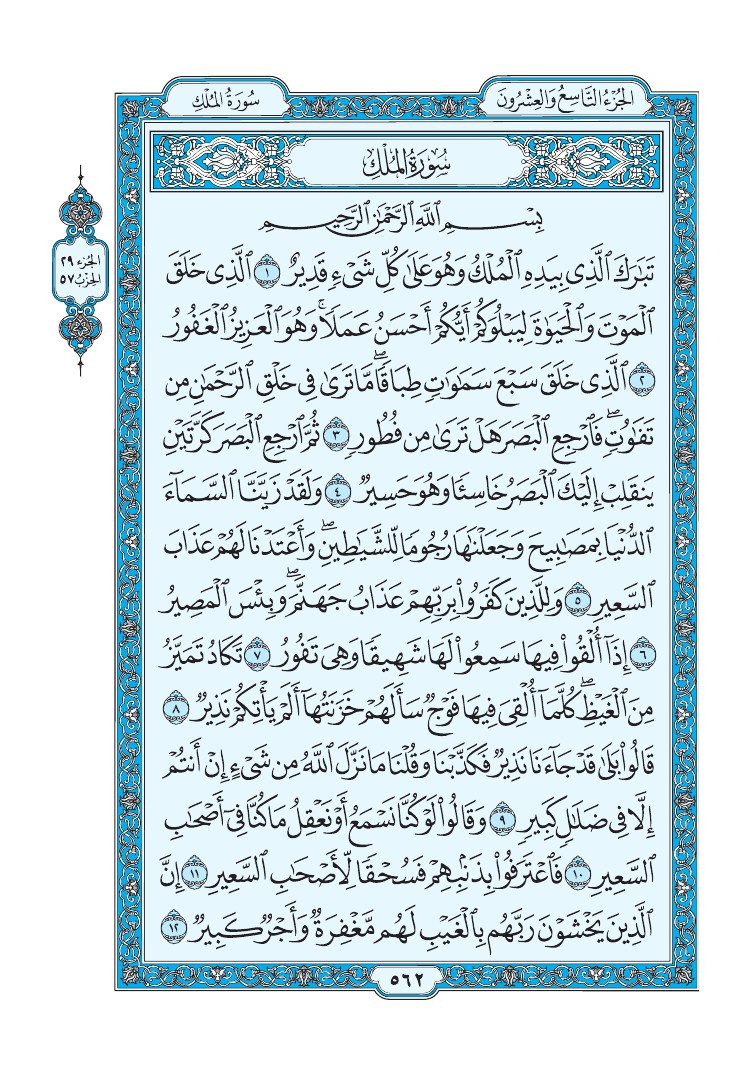 الجُزْءُ التَّاسِعُ وَالعِشْرُونَ
سُورَةُ المُلْكِ
سُورَةُ المُلْكِ
الجُزء ٢٩
الحِزْبُ ٥٧
بِسْمِ ٱللَّهِ ٱلرَّحْمَٰنِ ٱلرَّحِيمِ
تَبَٰرَكَ ٱلَّذِى بِيَدِهِ ٱلْمُلْكُ وَهُوَ عَلَىٰ كُلِّ شَىْءٍ قَدِيرٌ ١ ٱلَّذِى خَلَقَ
ٱلْمَوْتَ وَٱلْحَيَوٰةَ لِيَبْلُوَكُمْ أَيُّكُمْ أَحْسَنُ عَمَلًا ۚ وَهُوَ ٱلْعَزِيزُ ٱلْغَفُورُ
٢ ٱلَّذِى خَلَقَ سَبْعَ سَمَٰوَٰتٍ طِبَاقًا ۖ مَّا تَرَىٰ فِى خَلْقِ ٱلرَّحْمَٰنِ مِن
تَفَٰوُتٍ ۖ فَٱرْجِعِ ٱلْبَصَرَ هَلْ تَرَىٰ مِن فُطُورٍ ٣ ثُمَّ ٱرْجِعِ ٱلْبَصَرَ كَرَّتَيْنِ
يَنقَلِبْ إِلَيْكَ ٱلْبَصَرُ خَاسِئًا وَهُوَ حَسِيرٌ ٤ وَلَقَدْ زَيَّنَّا ٱلسَّمَآءَ
ٱلدُّنْيَا بِمَصَٰبِيحَ وَجَعَلْنَٰهَا رُجُومًا لِّلشَّيَٰطِينِ ۖ وَأَعْتَدْنَا لَهُمْ عَذَابَ
ٱلسَّعِيرِ ٥ وَلِلَّذِينَ كَفَرُوا۟ بِرَبِّهِمْ عَذَابُ جَهَنَّمَ ۖ وَبِئْسَ ٱلْمَصِيرُ
٦ إِذَآ أُلْقُوا۟ فِيهَا سَمِعُوا۟ لَهَا شَهِيقًا وَهِىَ تَفُورُ ٧ تَكَادُ تَمَيَّزُ
مِنَ ٱلْغَيْظِ ۖ كُلَّمَآ أُلْقِىَ فِيهَا فَوْجٌ سَأَلَهُمْ خَزَنَتُهَآ أَلَمْ يَأْتِكُمْ نَذِيرٌ ٨
قَالُوا۟ بَلَىٰ قَدْ جَآءَنَا نَذِيرٌ فَكَذَّبْنَا وَقُلْنَا مَا نَزَّلَ ٱللَّهُ مِن شَىْءٍ إِنْ أَنتُمْ
إِلَّا فِى ضَلَٰلٍ كَبِيرٍ ٩ وَقَالُوا۟ لَوْ كُنَّا نَسْمَعُ أَوْ نَعْقِلُ مَا كُنَّا فِىٓ أَصْحَٰبِ
ٱلسَّعِيرِ ١٠ فَٱعْتَرَفُوا۟ بِذَنۢبِهِمْ فَسُحْقًا لِّأَصْحَٰبِ ٱلسَّعِيرِ ١١ إِنَّ
ٱلَّذِينَ يَخْشَوْنَ رَبَّهُم بِٱلْغَيْبِ لَهُم مَّغْفِرَةٌ وَأَجْرٌ كَبِيرٌ ١٢
٥٦٢